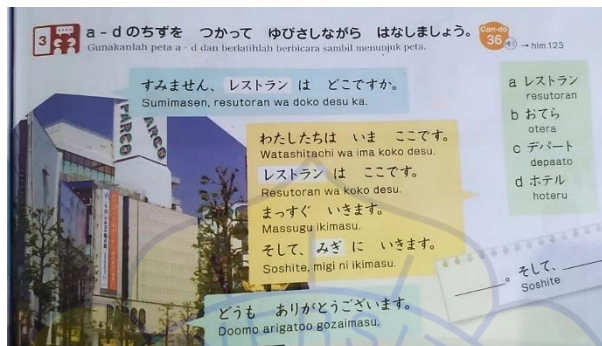 3
a - d のちずを つかって ゆびさしながら はなしましょう。
Can-do
36
→ hlm.123
Gunakanlah peta a - d dan berlatihlah berbicara sambil menunjuk peta.
すみません、レストラン は どこですか。
Sumimasen, resutoran wa doko desu ka.
PARCO
PARCO
わたしたちは いま ここです。
Watashitachi wa ima koko desu.
レストラン は ここです。
Resutoran wa koko desu.
まっすぐ いきます。
Massugu ikimasu.
そして、みぎ に いきます。
Soshite, migi ni ikimasu.
PARCO
どうも ありがとうございます。
Doomo arigatoo gozaimasu.
a レストラン
resutoran
b おてら
otera
c デパート
depaato
d ホテル
hoteru
______。そして、______
Soshite